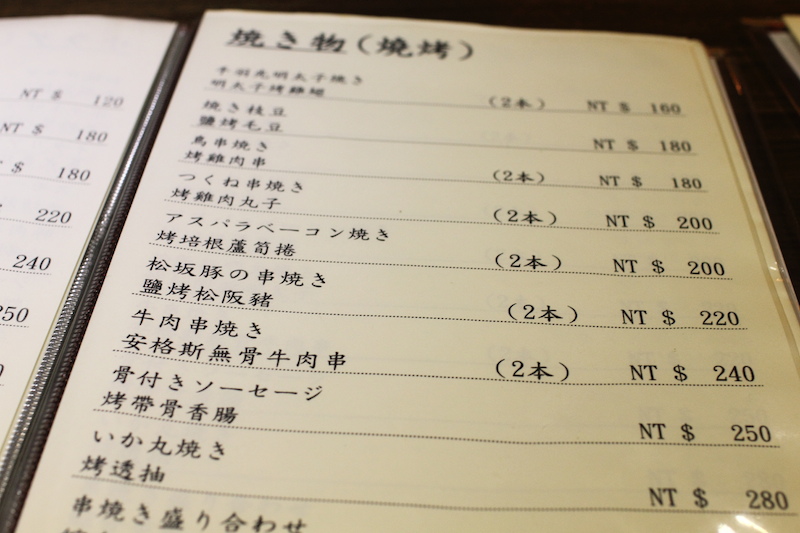 NT $ 120
NT $ 180
$ 180
220
240
250
焼き物(燒烤)
手羽先明太子焼き
明太子烤雞翅 (2本) NT $ 160
焼き枝豆
鹽烤毛豆 NT $ 180
鳥串焼き
烤雞肉串 (2本) NT $ 180
つくね串焼き
烤雞肉丸子 (2本) NT $ 200
アスパラベーコン焼き
烤培根蘆筍捲 (2本) NT $ 200
松坂豚の串焼き
鹽烤松阪豬 (2本) NT $ 220
牛肉串焼き
安格斯無骨牛肉串 (2本) NT $ 240
骨付きソーセージ
烤帶骨香腸 NT $ 250
いか丸焼き
烤透抽 NT $ 280
串焼き盛り合わせ